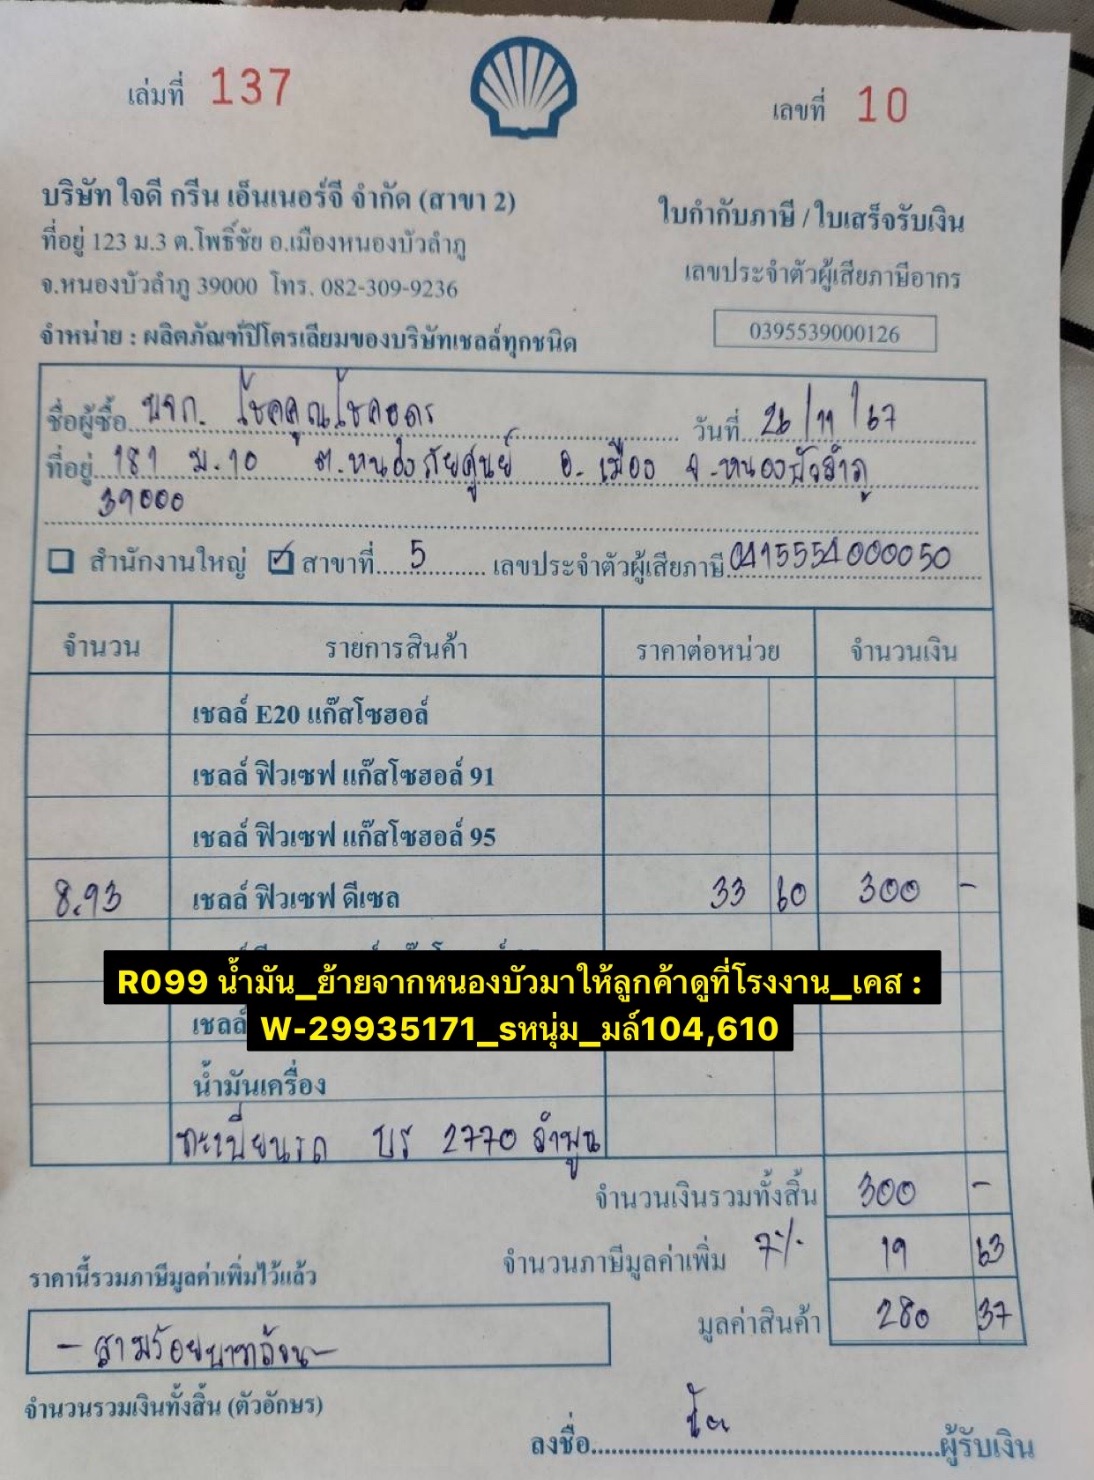 เล่มที่ 137
เลขที่ 10
บริษัท ใจดี กรีน เอ็นเนอร์จี จำกัด (สาขา 2)
ที่อยู่ 123 ม.3 ต.โพธิ์ชัย อ.เมืองหนองบัวลำภู
จ.หนองบัวลำภู 39000 โทร. 082-309-9236
จำหน่าย : ผลิตภัณฑ์ปิโตรเลียมของบริษัทเชลล์ทุกชนิด
ใบกำกับภาษี / ใบเสร็จรับเงิน
เลขประจำตัวผู้เสียภาษีอากร
0395539000126
ชื่อผู้ซื้อ หจก. โชคคูณโชคอุดร วันที่ 26/11/67
ที่อยู่ 181 ม.10 ต.หนองภัยศูนย์ อ.เมือง จ.หนองบัวลำภู
39000
สำนักงานใหญ่ ✓ สาขาที่ 5 เลขประจำตัวผู้เสียภาษี 0415554000050
จำนวน รายการสินค้า ราคาต่อหน่วย จำนวนเงิน
เชลล์ E20 แก๊สโซฮอล์
เชลล์ ฟิวเซฟ แก๊สโซฮอล์ 91
เชลล์ ฟิวเซฟ แก๊สโซฮอล์ 95
8.93 เชลล์ ฟิวเซฟ ดีเซล 33 60 300 -
R099 น้ำมัน_ย้ายจากหนองบัวมาให้ลูกค้าดูที่โรงงาน_เคส :
W-29935171_sหนุ่ม_มล์104,610
เชลล์
น้ำมันเครื่อง
ทะเบียนรถ บร 2770 ลำพูน
จำนวนเงินรวมทั้งสิ้น 300 -
จำนวนภาษีมูลค่าเพิ่ม 7% 19 63
ราคานี้รวมภาษีมูลค่าเพิ่มไว้แล้ว
มูลค่าสินค้า 280 37
- สามร้อยบาทถ้วน -
จำนวนรวมเงินทั้งสิ้น (ตัวอักษร)
ลงชื่อ ผู้รับเงิน